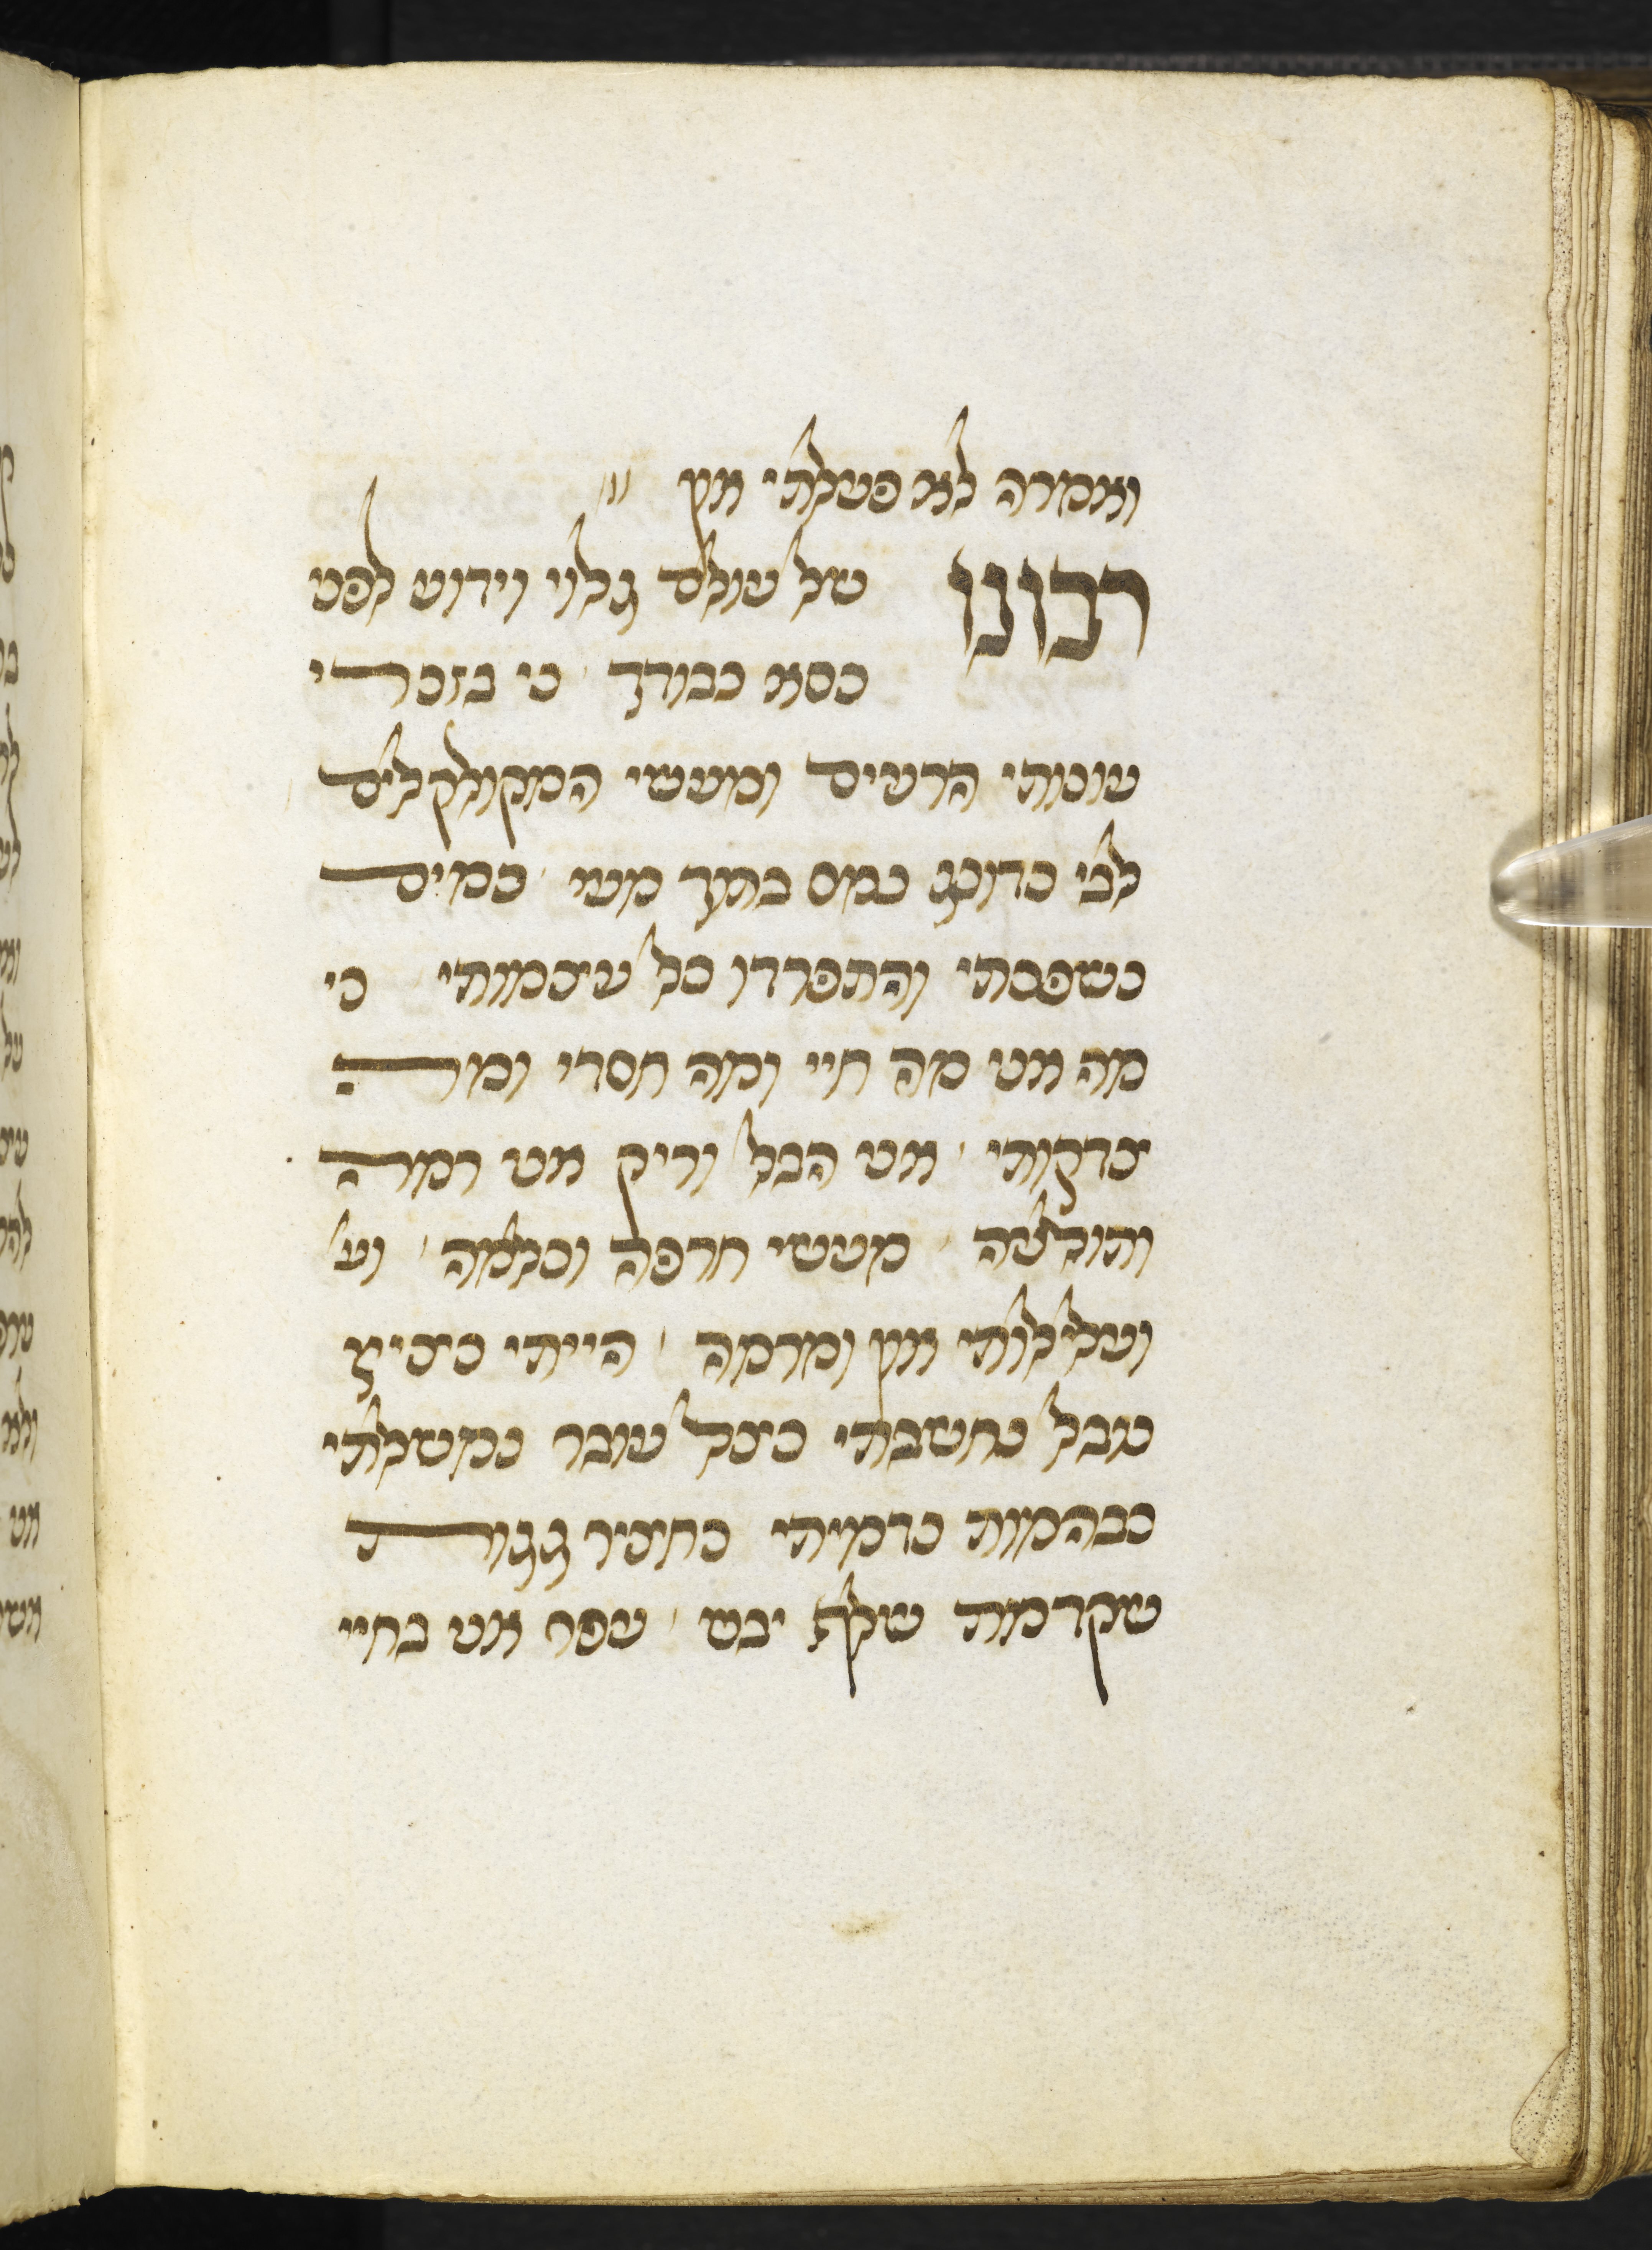 ואמרה לא פעלתי און
רבונו של עולם גלוי וידוע לפני
כסא כבודך כי בזכרי
עונותי הרעים ומעשי המקולקלים
לבי כדונג נמס בתוך מעי כמים
נשפכתי והתפרדו כל עצמותי כי
מה אני מה חיי ומה חסדי ומה
צדקותי אני הבל וריק אני רמה
ותולעה מעשי חרפה וכלמה וע
ועלילותי און ומרמה הייתי כציץ
נובל נחשבתי כצל עובר נמשלתי
כבהמות נדמיתי כחציר גגות
שקדמת שלף יבש עפר אני בחיי